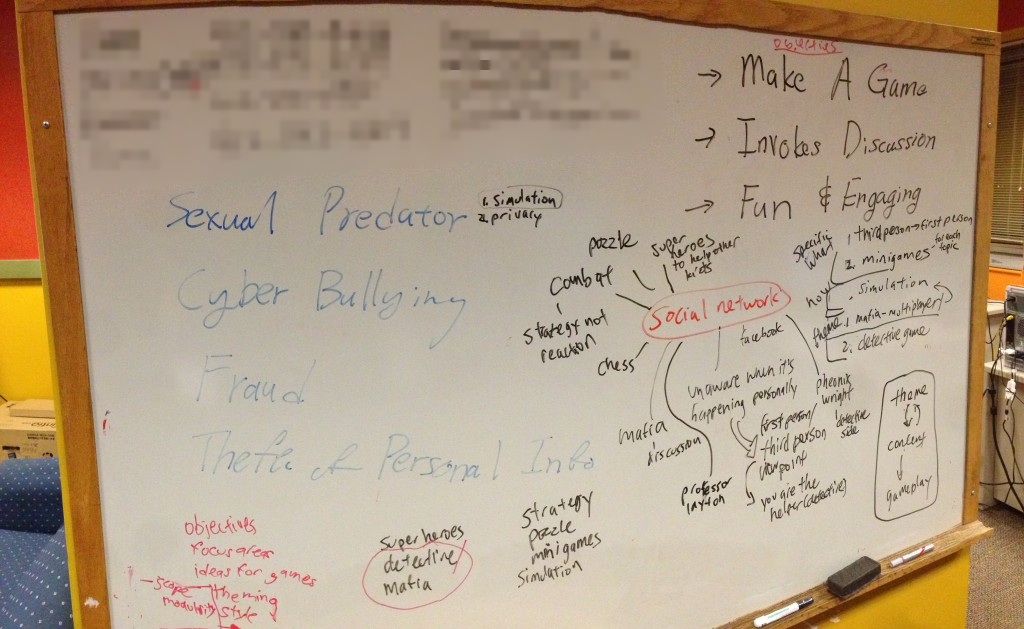 objectives
→ Make A Game
→ Invokes Discussion
→ Fun & Engaging
Sexual Predator
1. simulation
2. privacy
Cyber Bullying
Fraud
Theft of Personal Info
puzzle
super
heroes
to help other
kids
combat
strategy not
reaction
chess
social network
facebook
mafia
discussion
unaware when it's
happening personally
first person/
third person
viewpoint
you are the
helper (detective)
professor
layton
pheonix
wright
detective
side
specific
what
1. third person → first person
2. minigames
for each
topic
how
- simulation
theme
1. mafia - multiplayer
2. detective game
theme
gameplay
objectives
focus areas
ideas for games
scope
theming
modularity
style
superheroes
detective
mafia
strategy
puzzle
minigames
simulation